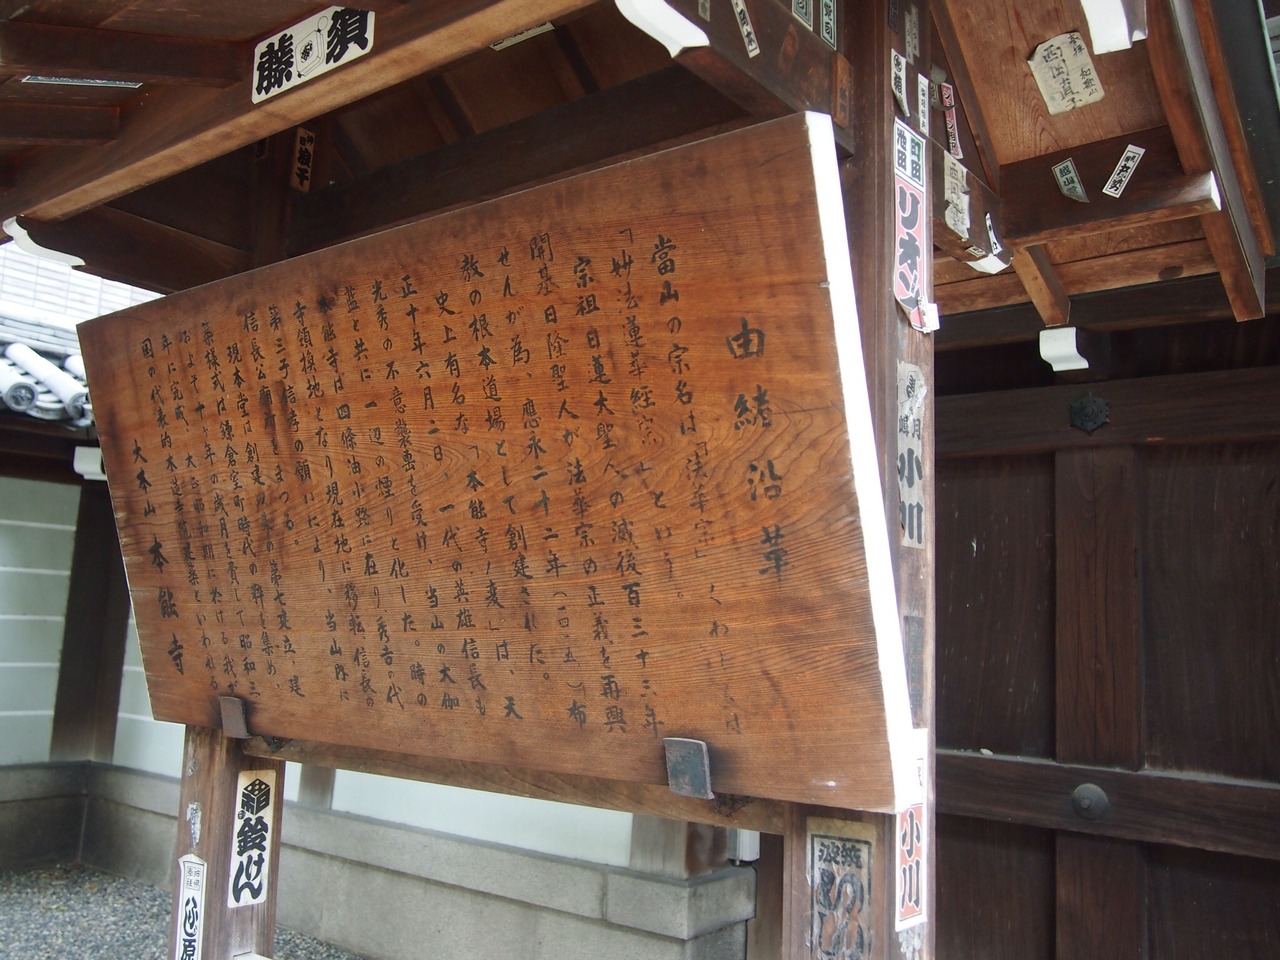 由緒沿革
當山の宗名は「法華宗」くわしくは
「妙法蓮華経宗」という。
宗祖日蓮大聖人の滅後百三十三年
開基日隆聖人が法華宗の正義を再興
せんが為、應永二十二年(一四一五)布
教の根本道場として創建された。
史上有名な「本能寺ノ変」は、天
正十年六月二日、一代の英雄信長も
光秀の不意襲撃を受け、当山の大伽
藍と共に一辺の煙りと化した。時の
本能寺は四條油小路に在り、秀吉の代
寺領換地となり現在地に移転、信長の
第三子信孝の願いにより、当山内に
信長公廟所をまつる。
現本堂は創建以来の第七建立、建
築様式は鎌倉室町時代の粋を集め、
およそ十ヶ年の歳月を費して昭和三
年に完成、大正昭和期に於ける我が
国の代表的木造寺院建築といわれる
大本山 本能寺
須藤
西岡直子
町田
池田
リオン
小川
小川
鈴けん